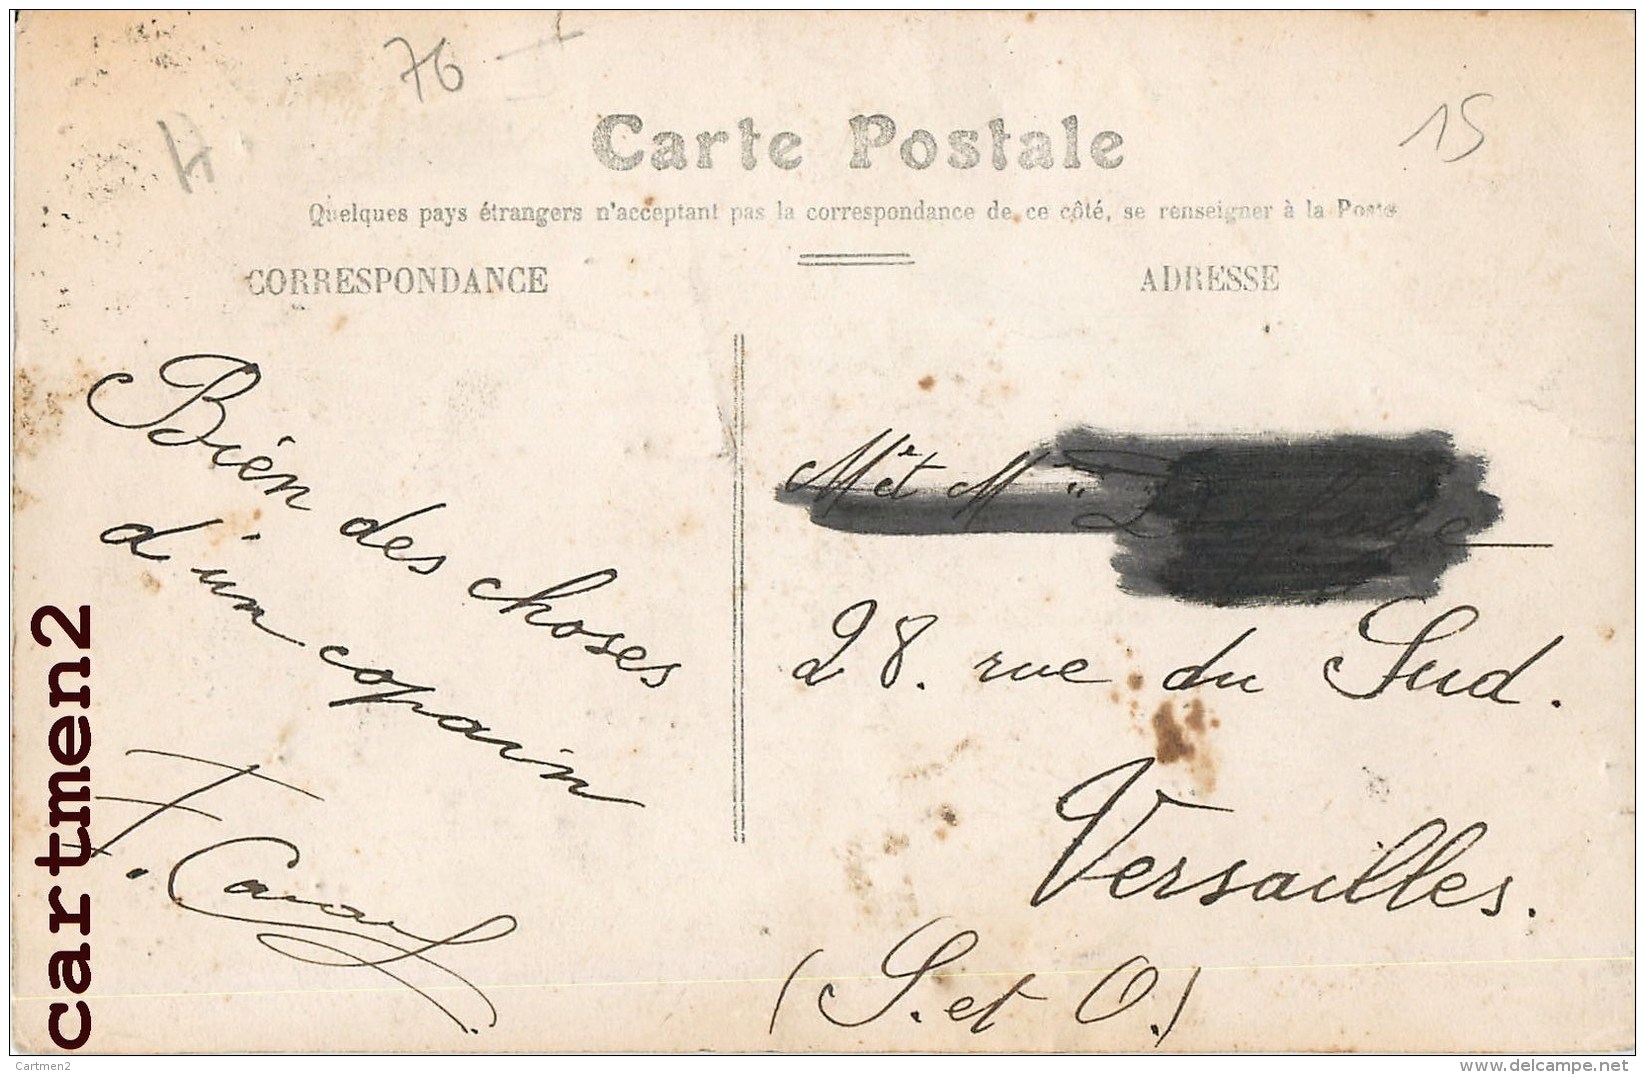 76
H.
15
Carte Postale
Quelques pays étrangers n'acceptant pas la correspondance de ce côté, se renseigner à la Poste
CORRESPONDANCE
ADRESSE
Bien des choses
d'un copain
F.
Mr et Mme
28. rue du Sud.
Versailles.
(S. et O.)
cartmen2
Cartmen2
www.delcampe.net